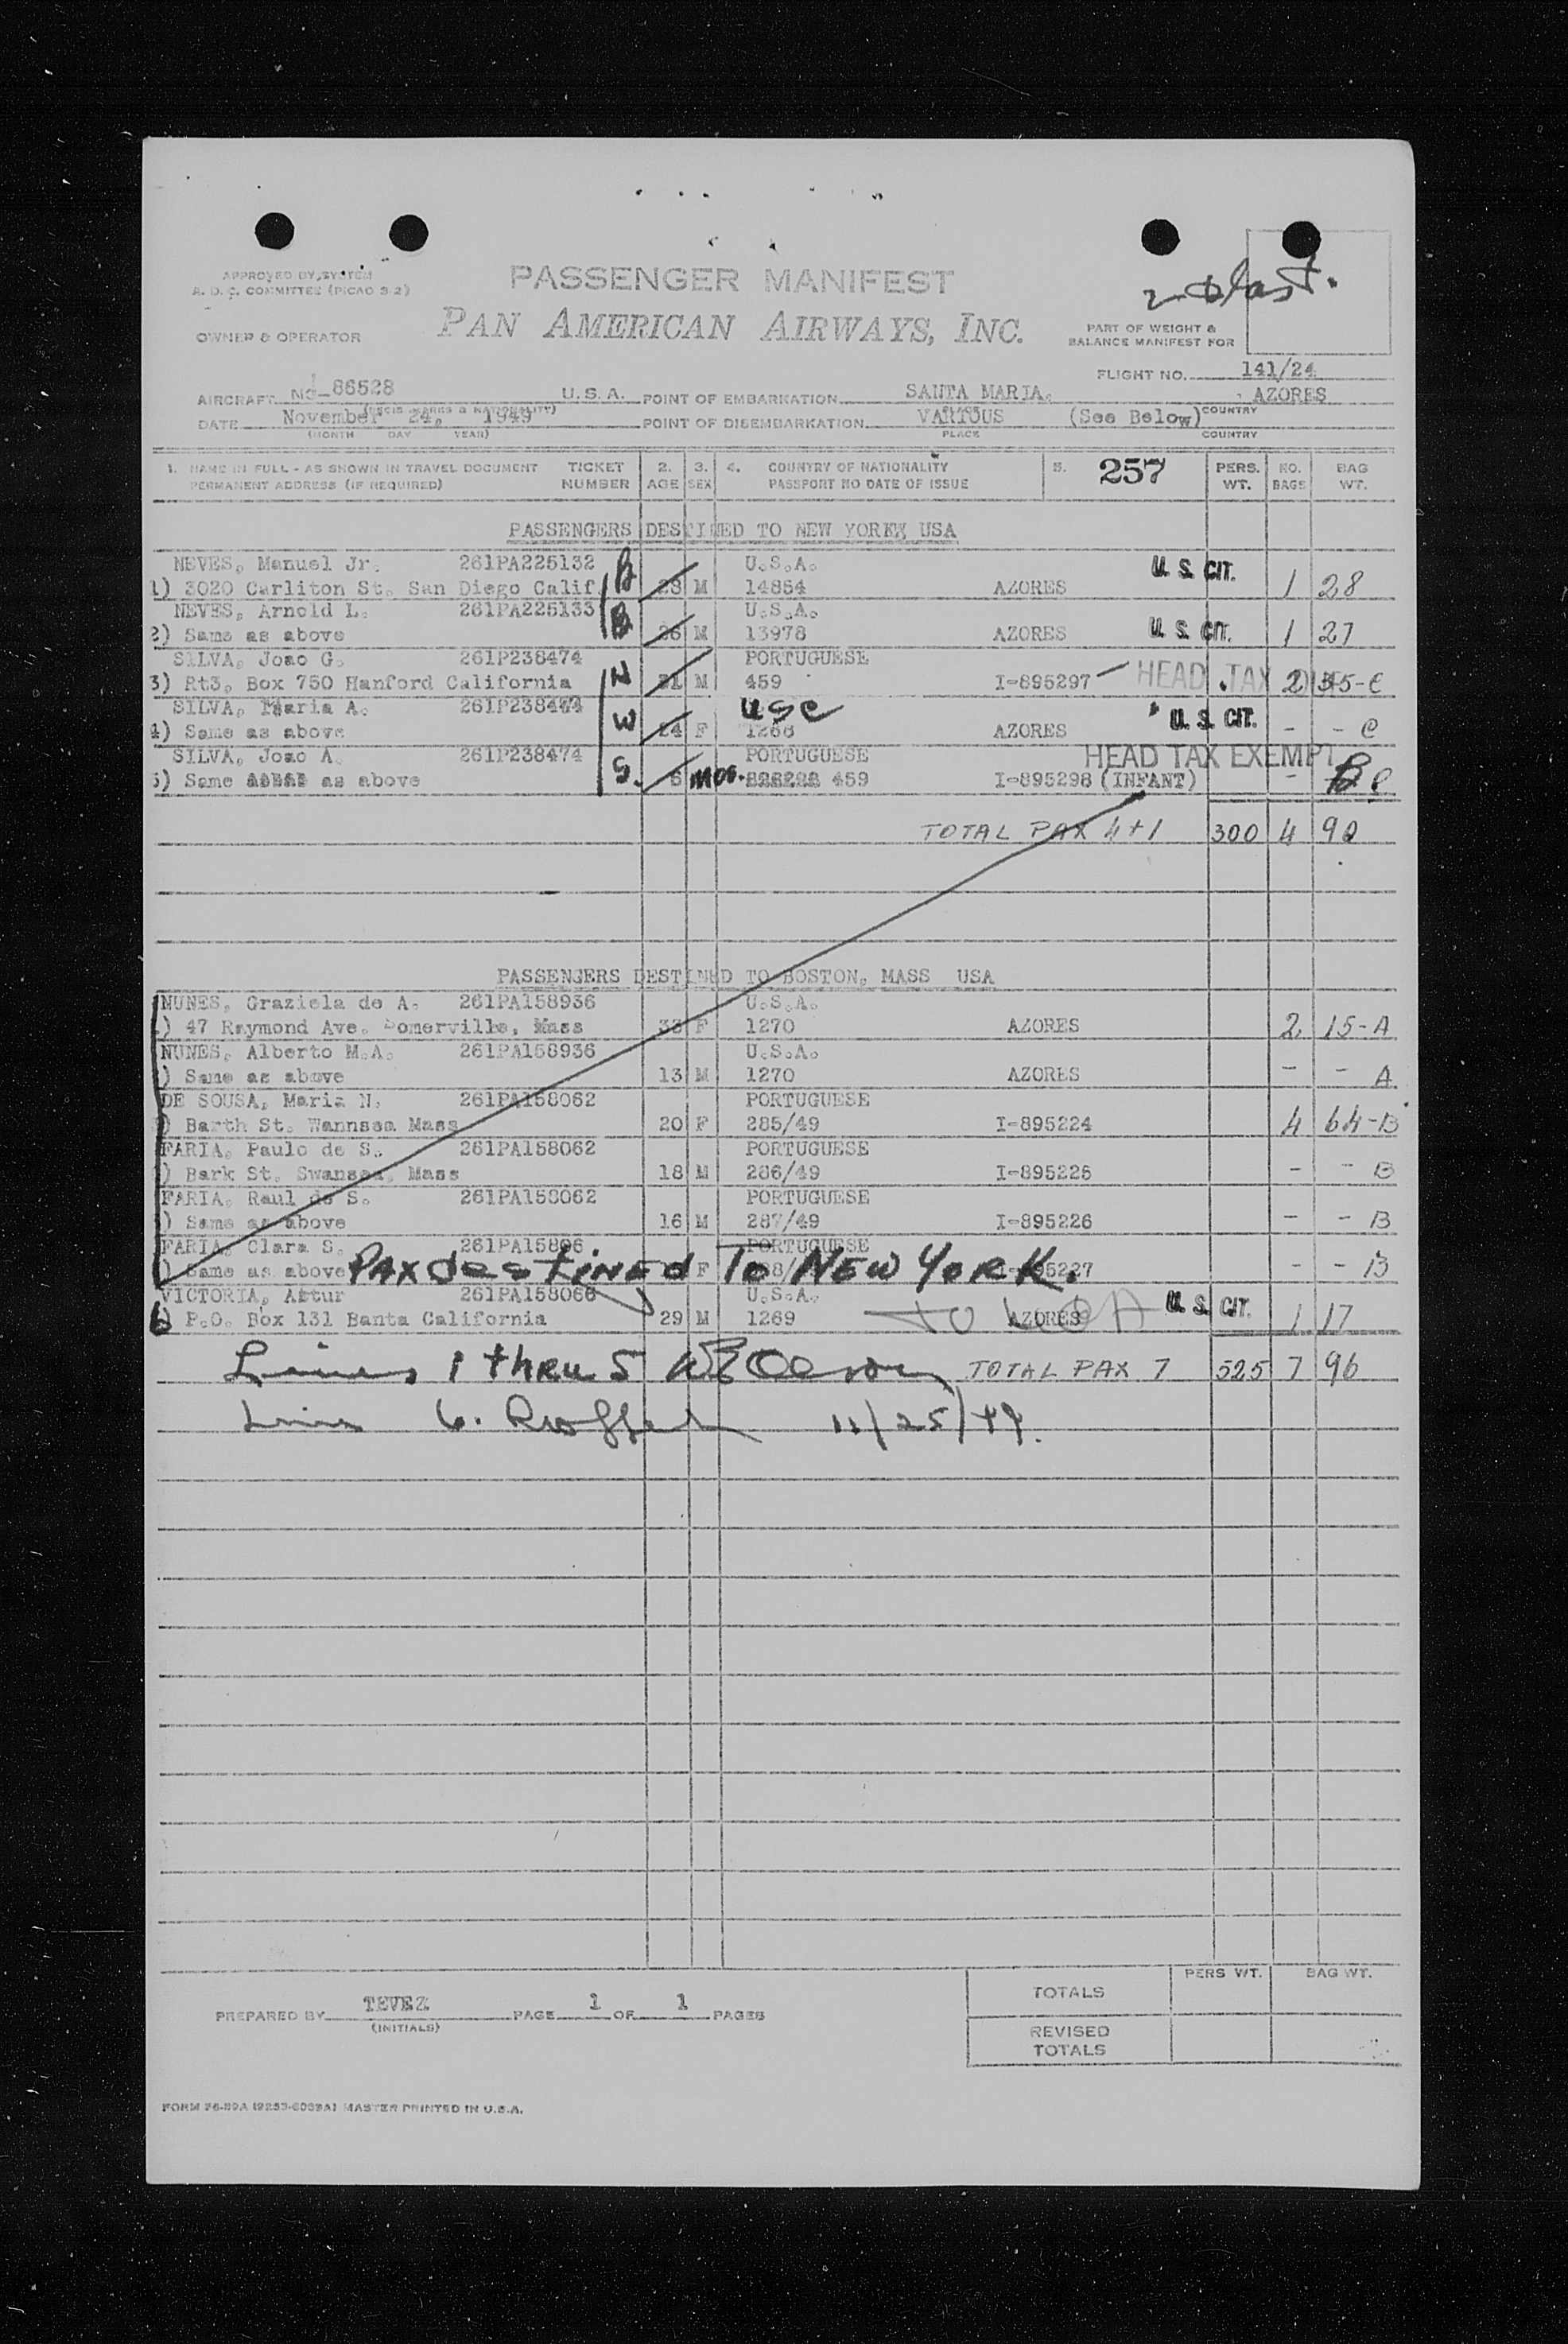 2 oblast.
APPROVED BY SYSTEM
A. D. C. COMMITTEE (PICAO S 2)
PASSENGER MANIFEST
OWNER & OPERATOR
PAN AMERICAN AIRWAYS, INC.
PART OF WEIGHT &
BALANCE MANIFEST FOR
FLIGHT NO. 141/24
AIRCRAFT NC-86528 U. S. A. POINT OF EMBARKATION SANTA MARIA, AZORES
DATE November 24, 1949 POINT OF DISEMBARKATION VARIOUS (See Below) COUNTRY
(MONTH DAY YEAR) PLACE COUNTRY
1. NAME IN FULL - AS SHOWN IN TRAVEL DOCUMENT TICKET 2. 3. 4. COUNTRY OF NATIONALITY 5. 257 PERS. NO. BAG
PERMANENT ADDRESS (IF REQUIRED) NUMBER AGE SEX PASSPORT NO DATE OF ISSUE WT. BAGS WT.
PASSENGERS DESTINED TO NEW YORK, USA
NEVES, Manuel Jr. 261PA225132 B U.S.A. U. S. CIT.
1) 3020 Carliton St. San Diego Calif. 28 M 14854 AZORES 1 28
NEVES, Arnold L. 261PA225133 B U.S.A.
2) Same as above 26 M 13978 AZORES U. S. CIT. 1 27
SILVA, Joao G. 261P238474 H PORTUGUESE
3) Rt3, Box 750 Hanford California 31 M 459 I-895297 HEAD TAX 2 35-C
SILVA, Maria A. 261P238474 W USC
4) Same as above 24 F 1268 AZORES U. S. CIT. - - C
SILVA, Joao A. 261P238474 S. PORTUGUESE HEAD TAX EXEMPT
5) Same as above 6 mos. 459 I-895298 (INFANT) - C
TOTAL PAX 4+1 300 4 90
PASSENJERS DESTINED TO BOSTON, MASS USA
NUNES, Graziela de A. 261PA158936 U.S.A.
) 47 Raymond Ave. Somerville, Mass 33 F 1270 AZORES 2 15-A
NUNES, Alberto M.A. 261PA158936 U.S.A.
) Same as above 13 M 1270 AZORES - - A
DE SOUSA, Maria N. 261PA158062 PORTUGUESE
) Barth St. Wannsea Mass 20 F 285/49 I-895224 4 64-B
FARIA, Paulo de S. 261PA158062 PORTUGUESE
) Bark St. Swansea, Mass 18 M 286/49 I-895225 - - B
FARIA, Raul de S. 261PA158062 PORTUGUESE
) Same as above 16 M 287/49 I-895226 - - B
FARIA, Clara S. 261PA15806 PORTUGUESE
) Same as above F - - B
PAX destined To NEW YORK.
VICTORIA, Artur 261PA158066 U.S.A.
6) P.O. Box 131 Banta California 29 M 1269 AZORES U. S. CIT. 1 17
Lines 1 thru 5 TOTAL PAX 7 525 7 96
Line 6. 11/25/49.
PREPARED BY TEVEZ PAGE 1 OF 1 PAGES
(INITIALS)
PERS WT. BAG WT.
TOTALS
REVISED
TOTALS
MASTER PRINTED IN U.S.A.